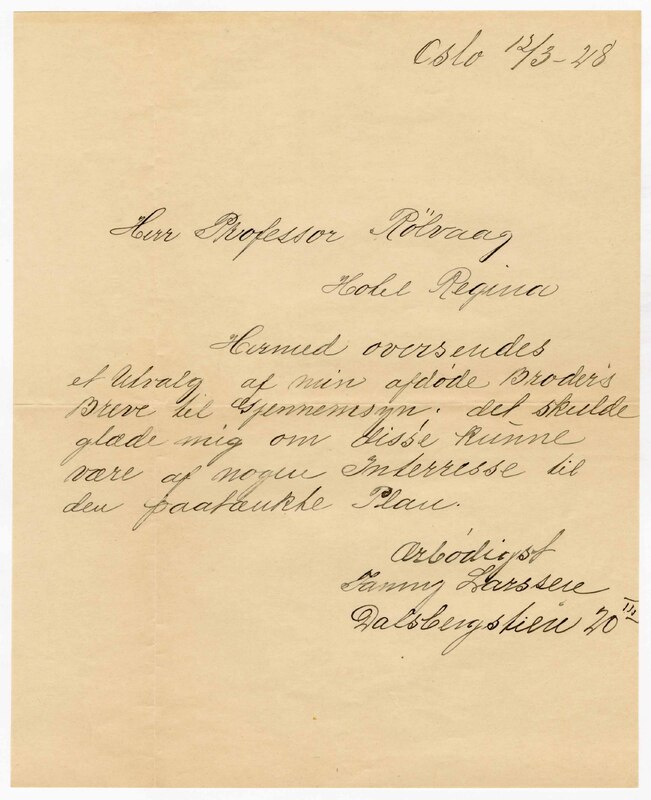 Oslo 12/3-28
Herr Professor Rölvaag
Hotel Regina
Hermed oversendes
et Utvalg af min afdøde Broder's
Breve til Gjennemsyn. det skulde
glæde mig om disse kunne
være af nogen Interresse til
den paatænkte Plan.
Ærbødigst
Fanny Larssen
Dalsbergstien 20 III